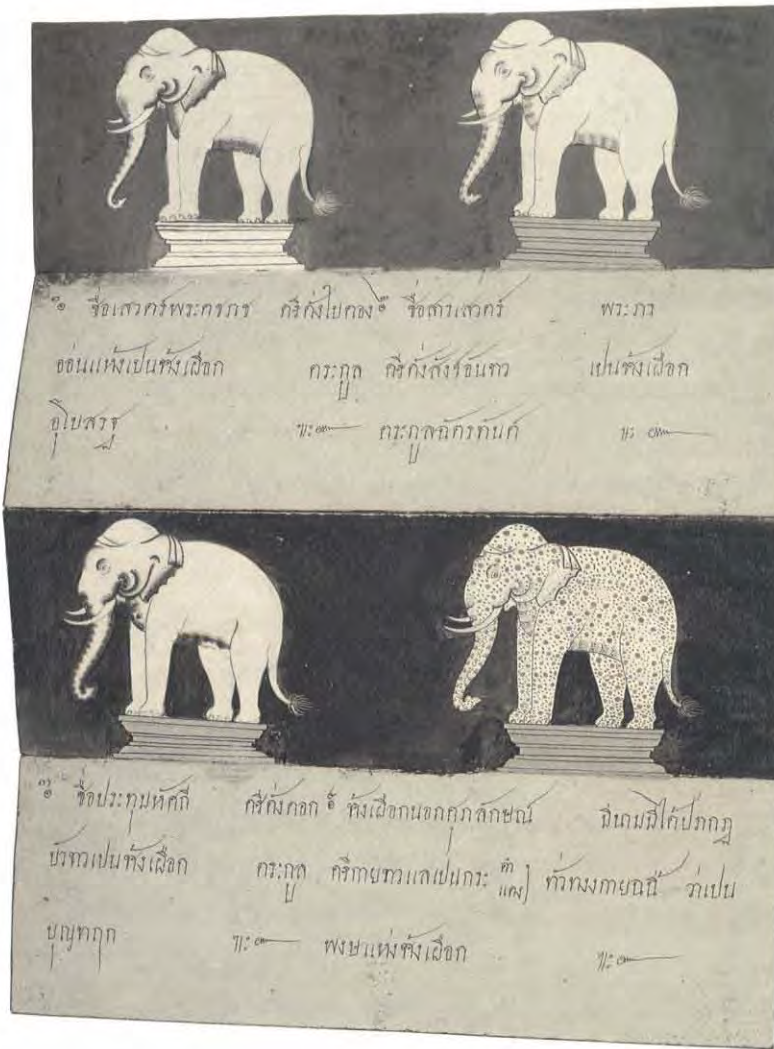 ๏ ชื่อเสวตร์พระคชราช ศรีดั่งใบตอง ๏ ชื่อสารเสวตร์ พระภา
ออ่นแห้งเปนช้างเผือก ตระกูล ศรีดั่งสังข์อันขาว เปนช้างเผือก
อุโบสรฐ ฯะ๛ ตระกูลฉัตรทันต์ ฯะ ๛
๏ ชื่อประทุมหัศถี ศรีดั่งดอก ๏ ช้างเผือกนอกศุภลักษณ์ มีนามมิได้ปรากฏ
บัวขาวเปนช้างเผือก ตระกูล ศรีกายขาวแลเปนกระ ดำ แดง ทั่วทางกายฉนี้ ว่าเปน
บุญฑฤก ฯะ๛ พงษแห่งช้างเผือก ฯะ๛